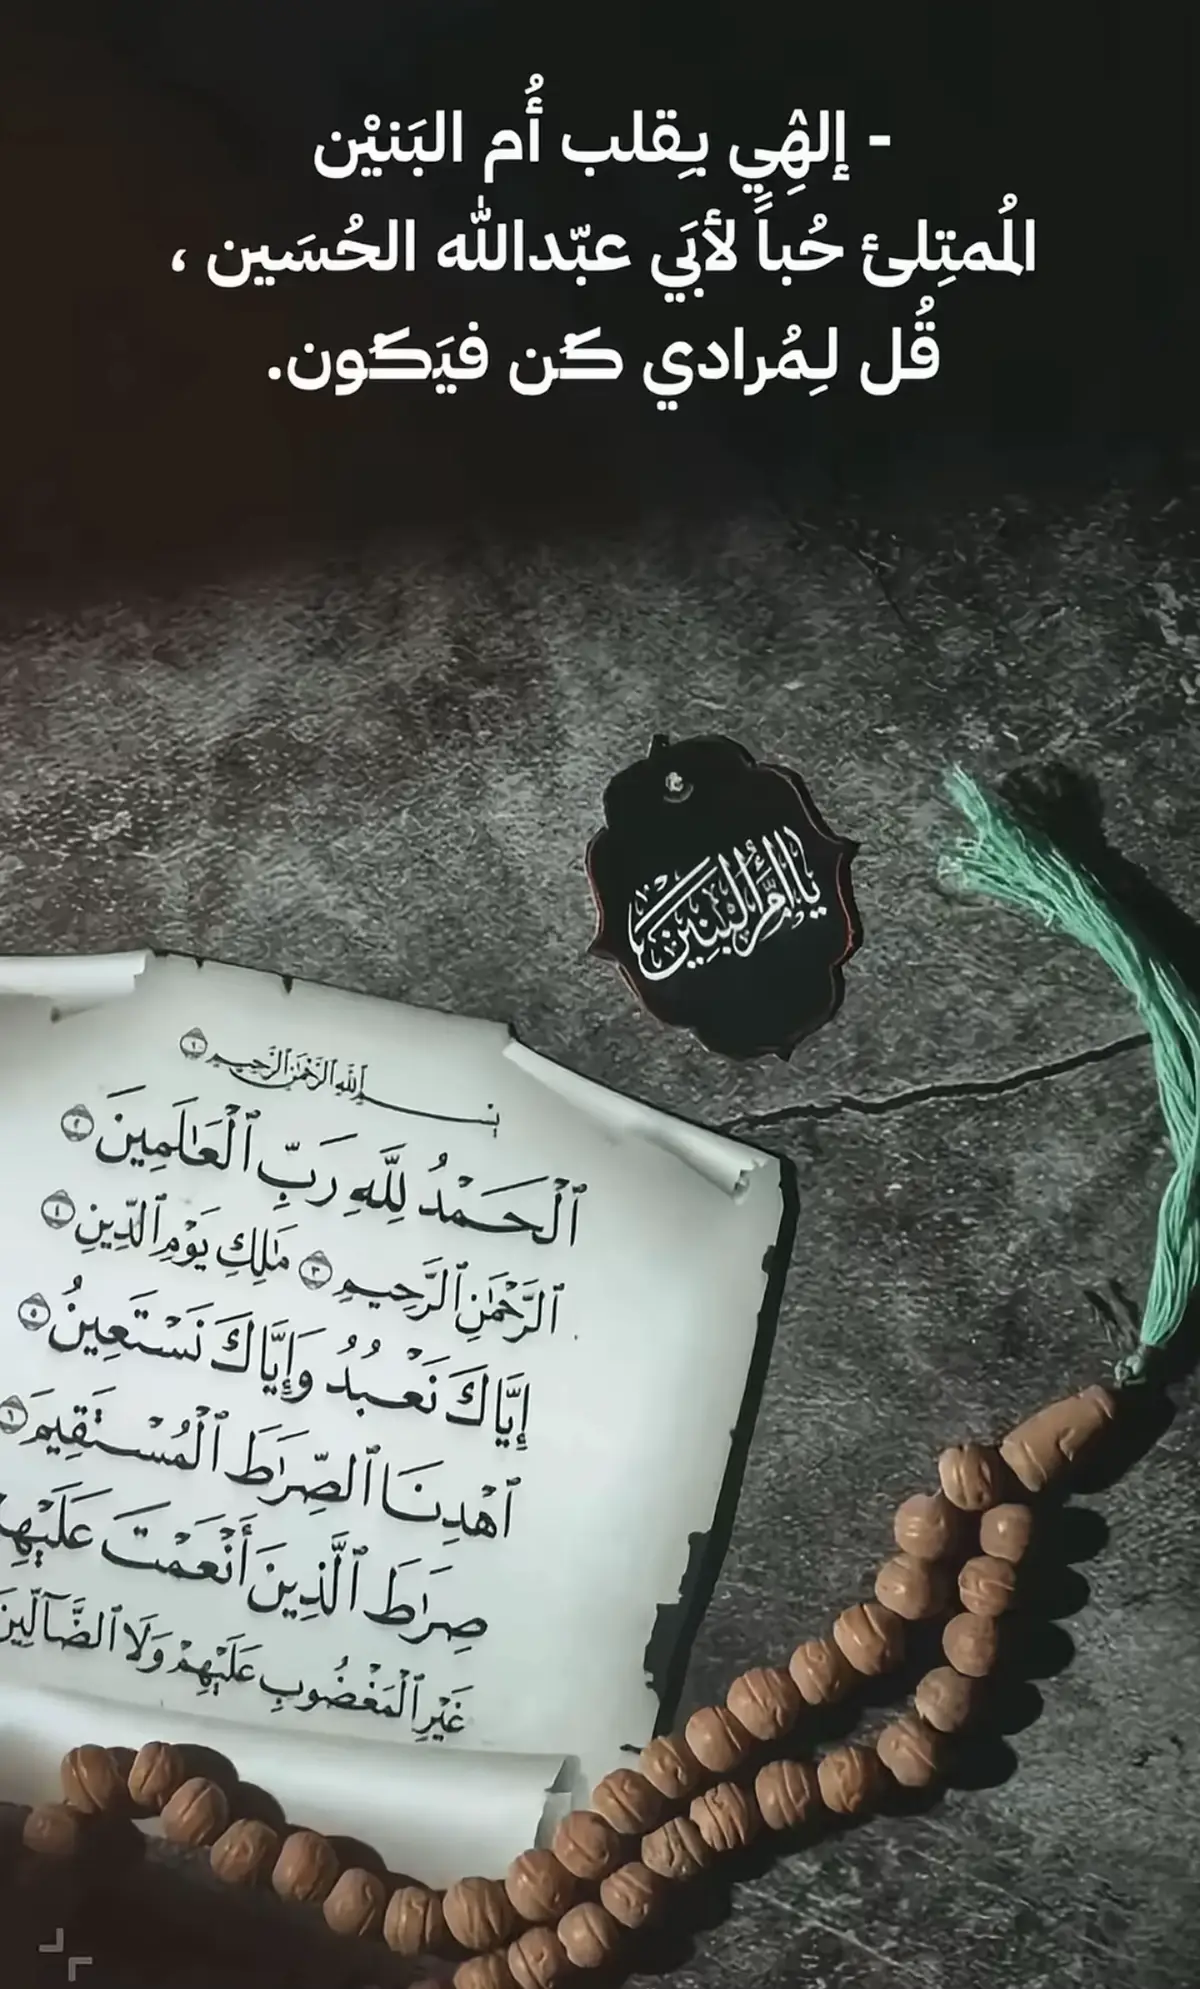 - إلهِي بِقلب أُم البَنيْن
المُمتِلئ حُباً لأبَي عبّدالله الحُسَين ،
قُل لِمُرادي كُن فيَكُون.
يا أم البنين
بسم الله الرحمن الرحيم ١
ٱلْحَمْدُ لِلَّهِ رَبِّ ٱلْعَٰلَمِينَ ٢
ٱلرَّحْمَٰنِ ٱلرَّحِيمِ ٣ مَٰلِكِ يَوْمِ ٱلدِّينِ ٤
إِيَّاكَ نَعْبُدُ وَإِيَّاكَ نَسْتَعِينُ ٥
ٱهْدِنَا ٱلصِّرَٰطَ ٱلْمُسْتَقِيمَ ٦
صِرَٰطَ ٱلَّذِينَ أَنْعَمْتَ عَلَيْهِ
غَيْرِ ٱلْمَغْضُوبِ عَلَيْهِمْ وَلَا ٱلضَّآلِّينَ